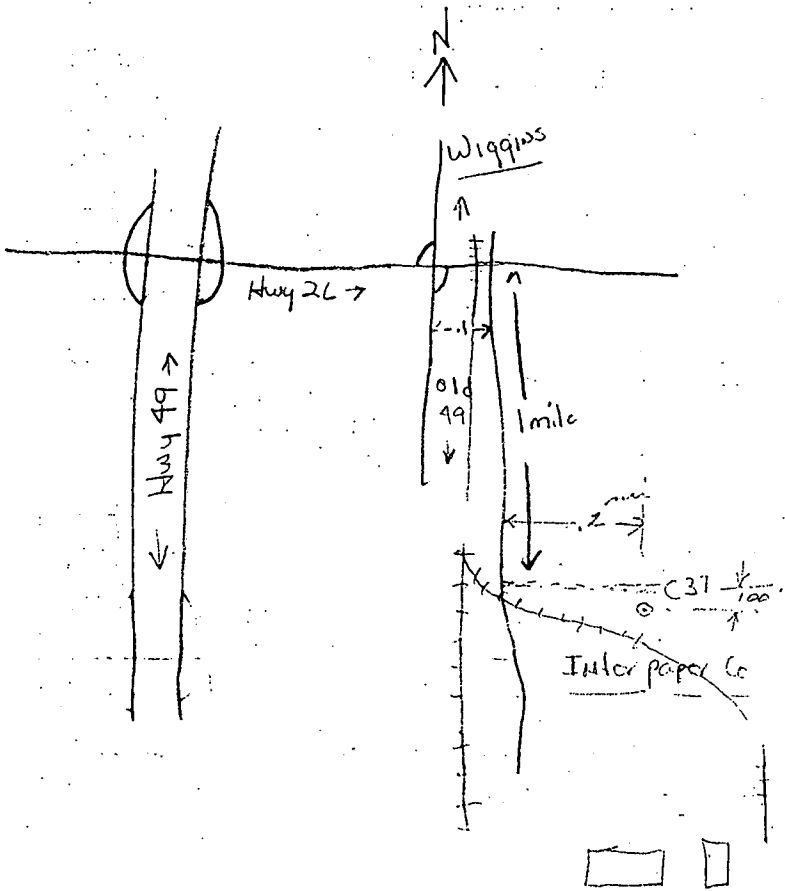 N
Wiggins
Hwy 26 →
.1
Hwy 49
old
49
1 mile
.2 mi
C37
100
Inter paper Co